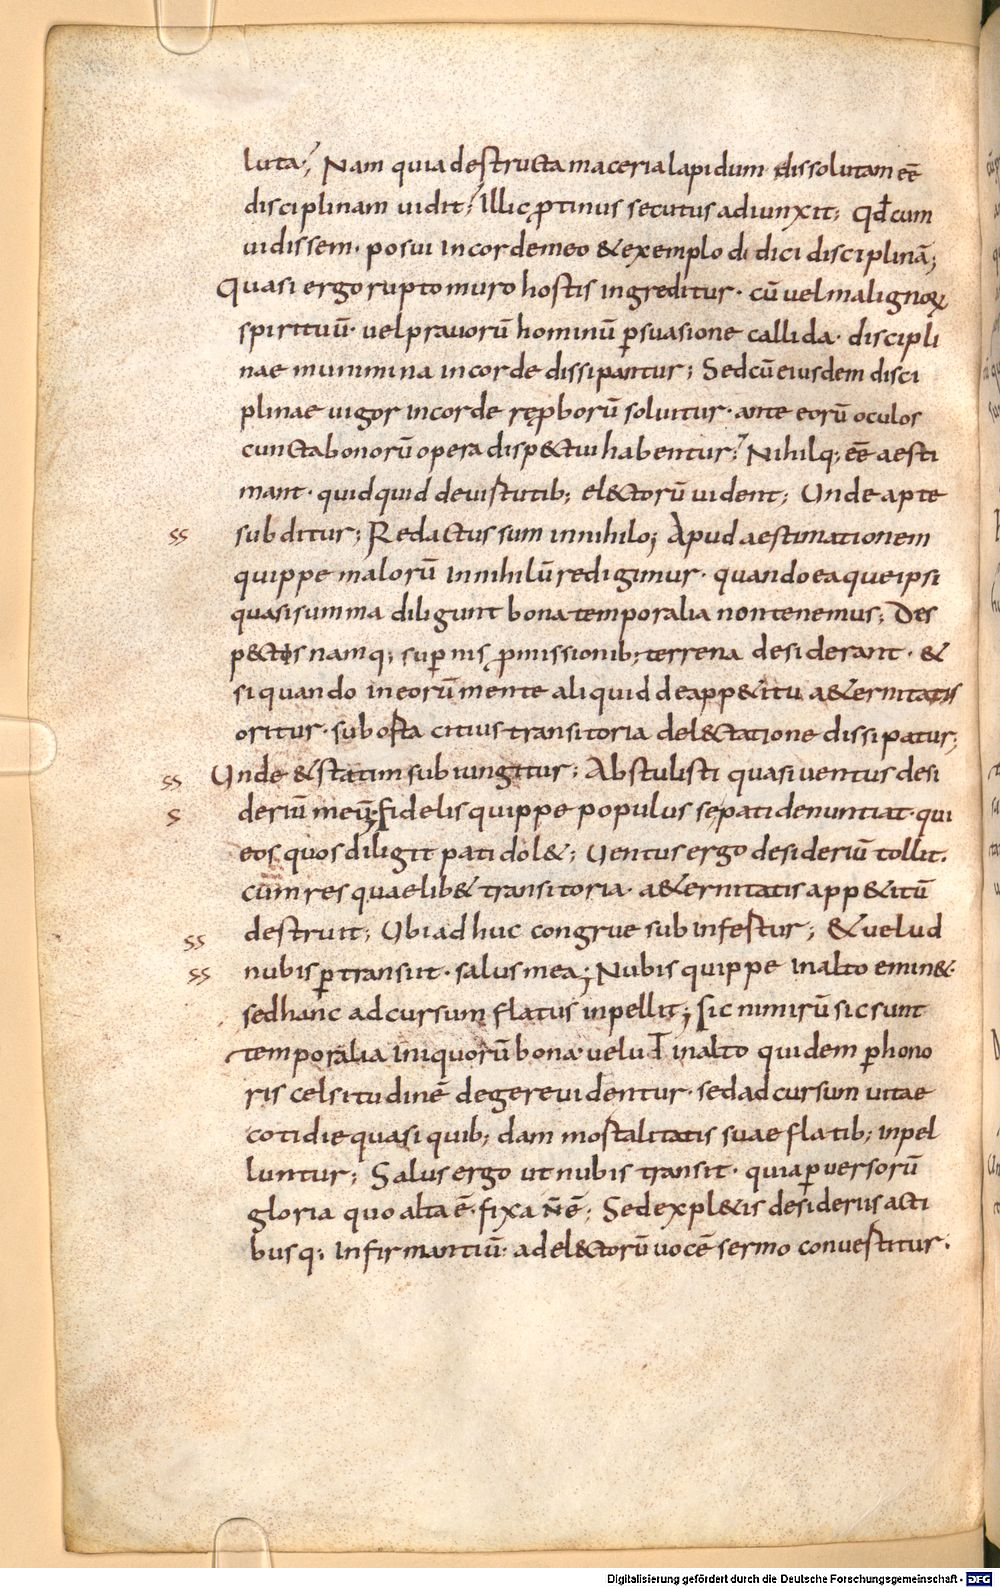 luta; Nam quia destructa maceria lapidum dissolutam eē
disciplinam uidit; Illic ꝓtinus secutus adiunxit; Qd̄ cum
uidissem· posui in corde meo & exemplo didici disciplinā;
Quasi ergo rupto muro hostis ingreditur· cū uel malignoꝝ
spirituū· uel prauorū hominū ꝑsuasione callida· discipli
nae munimina in corde dissipantur; Sed cū eiusdem disci
plinae uigor in corde reꝓborū soluitur· ante eorū oculos
cuncta bonorū opera disp&tui habentur; Nihilq; eē aesti
mant· quidquid de uirtutib; el&torū uident; Unde apte
subditur; Redactus sum in nihilo; Apud aestimationem
quippe malorū in nihilū redigimur· quando ea que ipsi
quasi summa diligunt bona temporalia non tenemus; Des
p&tis namq; suꝑnis ꝓmissionib; terrena desiderant· &
si quando in eorū mente aliquid de app&itu a&ernitatis
oritur· suborta citius transitoria del&tatione dissipatur;
ss Unde & statim subiungitur; Abstulisti quasi uentus desi
s deriū meū; fidelis quippe populus se pati denuntiat· qui
eos quos diligit pati dol&; Uentus ergo desideriū tollit·
cum res quaelib& transitoria· a&ernitatis app&itū
destruit; Ubi adhuc congrue subinfertur; & uelud
ss nubis ꝑtransiit· salus mea; Nubis quippe in alto emin&·
sed hanc ad cursum flatus inpellit; Sic nimirū sic sunt
temporalia iniquorū bona· uelut in alto quidem ꝑ hono
ris celsitudinē degere uidentur· sed ad cursum uitae
cotidie quasi quib;dam mortalitatis suae flatib; inpel
luntur; Salus ergo ut nubis transit· quia ꝑuersorū
gloria quo alta ē· fixa n̄ ē; Sed expl&is desideriis acti
busq; infirmantiū· ad el&torū uocē sermo conuertitur·
Digitalisierung gefördert durch die Deutsche Forschungsgemeinschaft - DFG